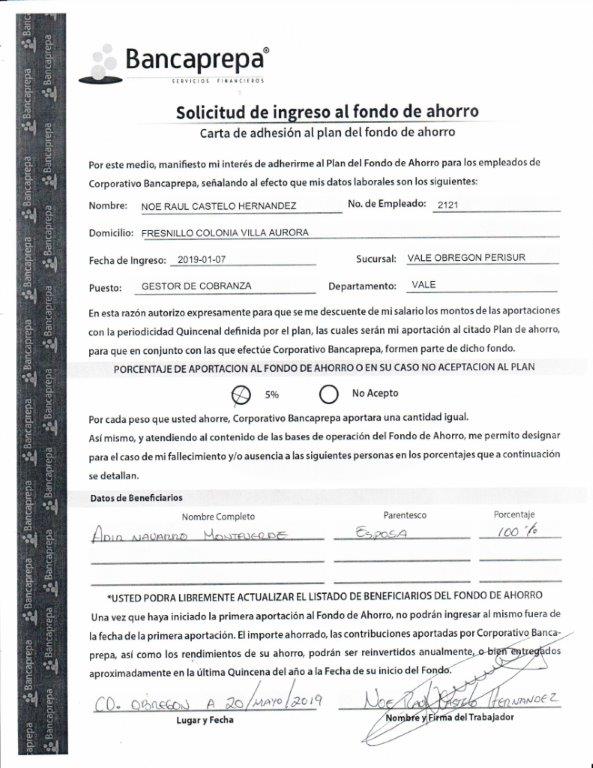 Bancaprepa®
SERVICIOS FINANCIEROS
Solicitud de ingreso al fondo de ahorro
Carta de adhesión al plan del fondo de ahorro
Por este medio, manifiesto mi interés de adherirme al Plan del Fondo de Ahorro para los empleados de
Corporativo Bancaprepa, señalando al efecto que mis datos laborales son los siguientes:
Nombre: NOE RAUL CASTELO HERNANDEZ No. de Empleado: 2121
Domicilio: FRESNILLO COLONIA VILLA AURORA
Fecha de Ingreso: 2019-01-07 Sucursal: VALE OBREGON PERISUR
Puesto: GESTOR DE COBRANZA Departamento: VALE
En esta razón autorizo expresamente para que se me descuente de mi salario los montos de las aportaciones
con la periodicidad Quincenal definida por el plan, las cuales serán mi aportación al citado Plan de ahorro,
para que en conjunto con las que efectúe Corporativo Bancaprepa, formen parte de dicho fondo.
PORCENTAJE DE APORTACION AL FONDO DE AHORRO O EN SU CASO NO ACEPTACION AL PLAN
5% No Acepto
Por cada peso que usted ahorre, Corporativo Bancaprepa aportara una cantidad igual.
Así mismo, y atendiendo al contenido de las bases de operación del Fondo de Ahorro, me permito designar
para el caso de mi fallecimiento y/o ausencia a las siguientes personas en los porcentajes que a continuación
se detallan.
Datos de Beneficiarios
Nombre Completo Parentesco Porcentaje
ADIR NAVARRO MONTEVERDE ESPOSA 100%
*USTED PODRA LIBREMENTE ACTUALIZAR EL LISTADO DE BENEFICIARIOS DEL FONDO DE AHORRO
Una vez que haya iniciado la primera aportación al Fondo de Ahorro, no podrán ingresar al mismo fuera de
la fecha de la primera aportación. El importe ahorrado, las contribuciones aportadas por Corporativo Banca-
prepa, así como los rendimientos de su ahorro, podrán ser reinvertidos anualmente, o bien entregados
aproximadamente en la última Quincena del año a la Fecha de su inicio del Fondo.
CD. OBREGON A 20/MAYO/2019 NOE RAUL CASTELO HERNANDEZ
Lugar y Fecha Nombre y Firma del Trabajador